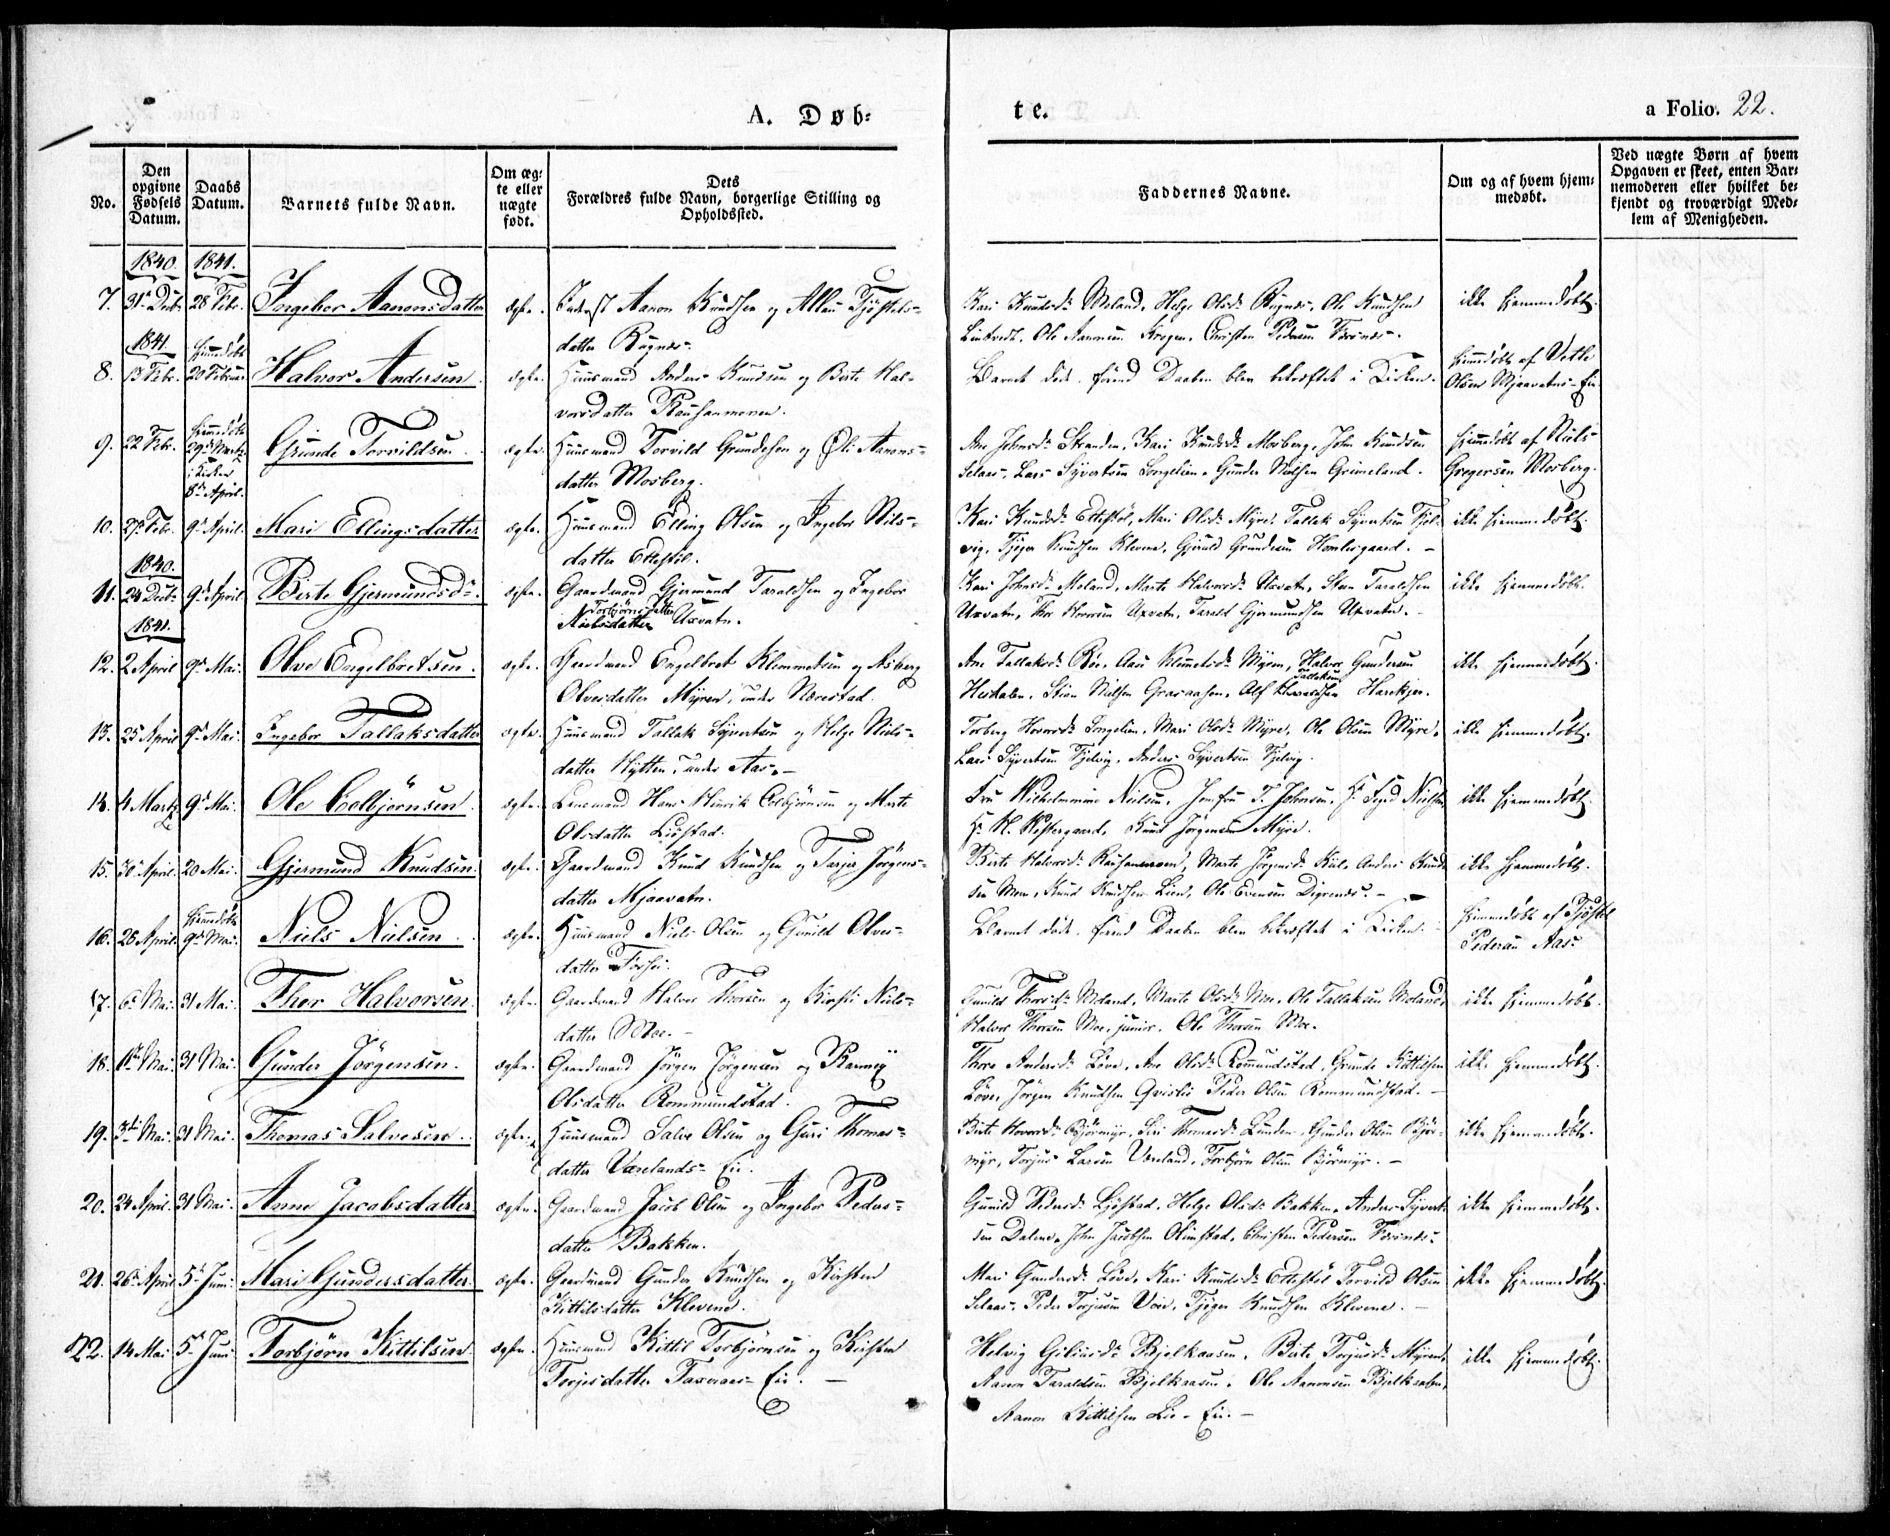 A. Døb=
te.
a Folio. 22.
No.
Den opgivne Fødsels Datum.
Daabs Datum.
Barnets fulde Navn.
Om æg=te eller uægte født.
Dets
Forældres fulde Navn, borgerlige Stilling og Opholdssted.
Faddernes Navne.
Om og af hvem hjem=medøbt.
Ved uægte Børn af hvem Opgaven er skeet, enten Bar=nemoderen eller hvilket be=kjendt og troværdigt Med=lem af Menigheden.
1840. 1841.
7. 31 Decbr 28 Febr. Ingebor Aanonsdatter ægte. Aanon Knudsen og
datter Rognes.
Kari Knudsdr Moland, Helge Olsdr Rognes, Ole Knudsen
Ole Aanonsen Krogen, Christen Pedersen ikke hjemmedøbt.
1841. hjemmedøbt
8. 13 Febr. 20 Februar Halvor Andersen. ægte. Huusmand Anders Knudsen og Berte Hal=
vorsdatter
Barnet døde, førend Daaben blev bekræftet i Kirken.
hjemmedøbt af Vetle
Olsen Mjaavatns-Eie
9. 22 Febr. hjemmedøbt 29 Martz i Kirken 8de April. Gunde Torvildsen. ægte. Huusmand Torvild Gundesen og Aanons=
datter Mosberg.
Ane Johnsdr Stranden, Kari Knudsdr Mosberg, John Knudsen
Selaas, Lars Syvertsen Longelien, Gunder Nielsen Grimeland.
hjemmedøbt af Niels
Gregersen Mosberg.
10. 27 Febr. 9de April. Mari Ellingsdatter ægte. Huusmand Elling Olsen og Ingebor Nils=
datter Ettestøl.
Kari Knudsdr Ettestøl, Mari Olsdr Myre, Tallak Syvertsen Fjel=
vig, Tjøger Knudsen Klevene, Gjeruld Gundesen ikke hjemmedøbt.
1840.
11. 24 Decbr 9de April. Berte Gjermundsdr. ægte. Gaardmand Gjermund Taraldsen og Ingebor
Torbjørnsdatter
Nielsdatter Uxvatn.
Kari Johnsdr Moland, Marte Halvorsdr Uxvatn, Sten Taraldsen
Uxvatn, Thor Hovorsen Uxvatn, Tarald Gjermundsen Uxvatn. ikke hjemmedøbt.
1841.
12. 2 April 9de Mai. Olve Engelbretsen. ægte. Gaardmand Engelbret Klemmetsen og Asberg
Olvesdatter Myren, under Nærestad.
Ane Tallaksdr Røe, Klemmetsdr Myren, Halvor Gundersen
Heidalen, Stian Nielsen Graasaasen, Alf Tallaksen ikke hjemmedøbt.
13. 25 April 9de Mai. Ingebor Tallaksdatter ægte. Huusmand Tallak Syvertsen og Helge Niels=
datter Hytten, under Aas.
Torberg Hovorsdr Longelien, Mari Olsdr Myre, Ole Olsen Myre,
Lars Syvertsen Fjelvig, Anders Syvertsen Fjelvig. ikke hjemmedøbt.
14. 4 Martz 9de Mai. Ole Colbjørnsen. ægte. Lensmand Hans Henrik Colbjørnsen og Marte
Olsdatter Liøstad.
Fru Wilhelmine Nielsen, Jomfru T. Johnsen, Hr. Nielsen,
Hr. N. Westergaard, Knud Jørgensen Myre. ikke hjemmedøbt.
15. 30 April. 20 Mai. Gjermund Knudsen. ægte. Gaardmand Knud Knudsen og Tarjer Jørgens=
datter Mjaavatn.
Berte Halvorsdr Marte Jørgensdr Anders Knud=
sen Moe, Knud Knudsen Lien, Ole Evensen Digrenes. ikke hjemmedøbt.
16. 26 April. hjemmedøbt 9de Mai. Niels Nielsen. ægte. Huusmand Niels Olsen og Gunild Olves=
datter Fosse.
Barnet døde, førend Daaben blev bekræftet i Kirken.
hjemmedøbt af Tjøstel
Pedersen Aas.
17. 6 Mai. 31 Mai. Thor Halvorsen. ægte. Gaardmand Halvor Thorsen og Kirsti Niels=
datter Moe.
Gunild Thorsdr Moland, Marte Olsdr Moe, Ole Tallaksen Moland,
Halvor Thorsen Moe, junior, Ole Thorsen Moe. ikke hjemmedøbt.
18. Mai. 31 Mai. Gunder Jørgensen. ægte. Gaardmand Jørgen Jørgensen og
Olsdatter Rommundstad.
Thore Andersdr Løve, Ane Olsdr Rommundstad, Gunde Kittilsen
Løve, Jørgen Knudsen Qvislie, Peder Olsen Rommundstad. ikke hjemmedøbt.
19. Mai. 31 Mai. Thomas Salvesen. ægte. Huusmand Salve Olsen og Guri Thomas=
datter Værelands-Eie.
Berte Hovorsdr Bjørmyr, Siri Thomasdr Lunden, Gunder Olsen Bjør=
myr, Torjus Larsen Væreland, Torbjørn Olsen Bjørmyr. ikke hjemmedøbt.
20. 24 April. 31 Mai. Anne Jacobsdatter ægte. Gaardmand Jacob Olsen og Ingebor Peders=
datter Bakken.
Gunild Pedersdr Ljøstad, Helge Olsdr Bakken, Anders Syvert=
sen Dalene, John Jacobsen Olimstad, Christen Pedersen ikke hjemmedøbt.
21. 26 April 5 Juni. Mari Gundersdatter. ægte. Gaardmand Gunder Knudsen og Kirsten
Kittilsdatter Klevene.
Mari Gundersdr Løve, Kari Knudsdr Ettestøl, Torvild Olsen
Selaas, Peder Torjusen Tjøger Knudsen Klevene. ikke hjemmedøbt.
22. 14 Mai 5 Juni. Torbjørn Kittilsen ægte. Huusmand Kittil Torbjørnsen og Kirsten
Torjusdatter Eie.
Helvig Bjelkaasen, Berte Torjusdr Myren,
Aanon Taraldsen Bjelkaasen, Ole Aanonsen Bjelkaasen,
Aanon Kittilsen Lie-Eie. ikke hjemmedøbt.